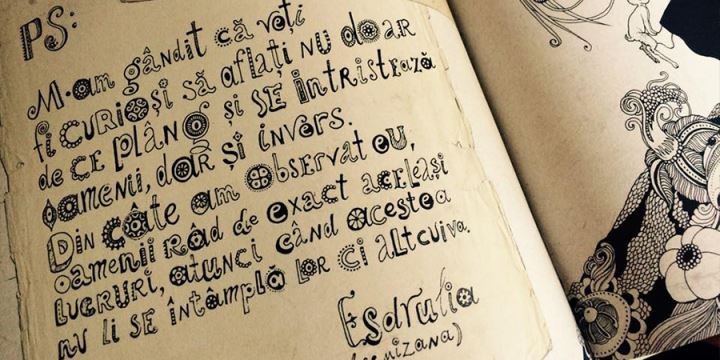 PS:
M-am gândit că veți
fi CURIOȘI să aflați NU doar
de CE plâng și SE întristează
oamenii, dar și invers.
Din câte am observat eu,
oamenii râd de exact aceleași
lucruri, atunci când acestea
nu li se întâmplă lor ci altcuiva.
Esdrutia